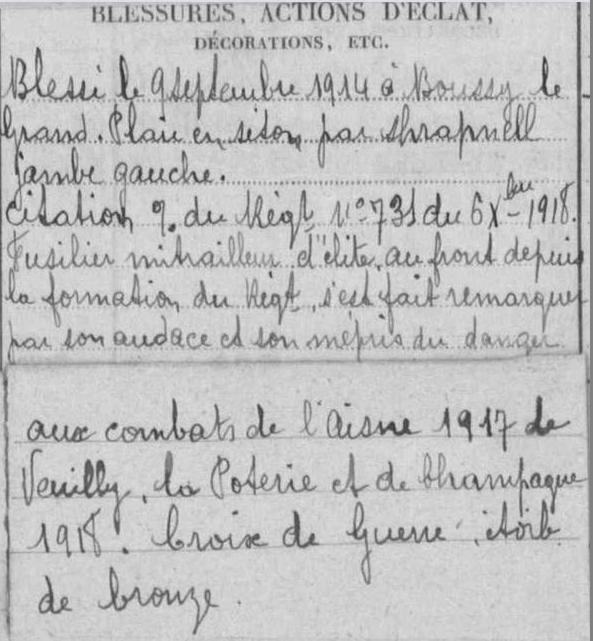 BLESSURES, ACTIONS D'ÉCLAT,
DÉCORATIONS, ETC.
Blessé le 9 septembre 1914 à Boussy le
Grand. Plaie en séton par shrapnell
jambe gauche.
Citation O. du Régt N° 731 du 6 Xbre 1918.
Fusilier mitrailleur d'élite, au front depuis
la formation du Régt, s'est fait remarquer
par son audace et son mépris du danger
aux combats de l'Aisne 1917 de
Veuilly, la Poterie et de Champagne
1918. Croix de Guerre étoile
de bronze.